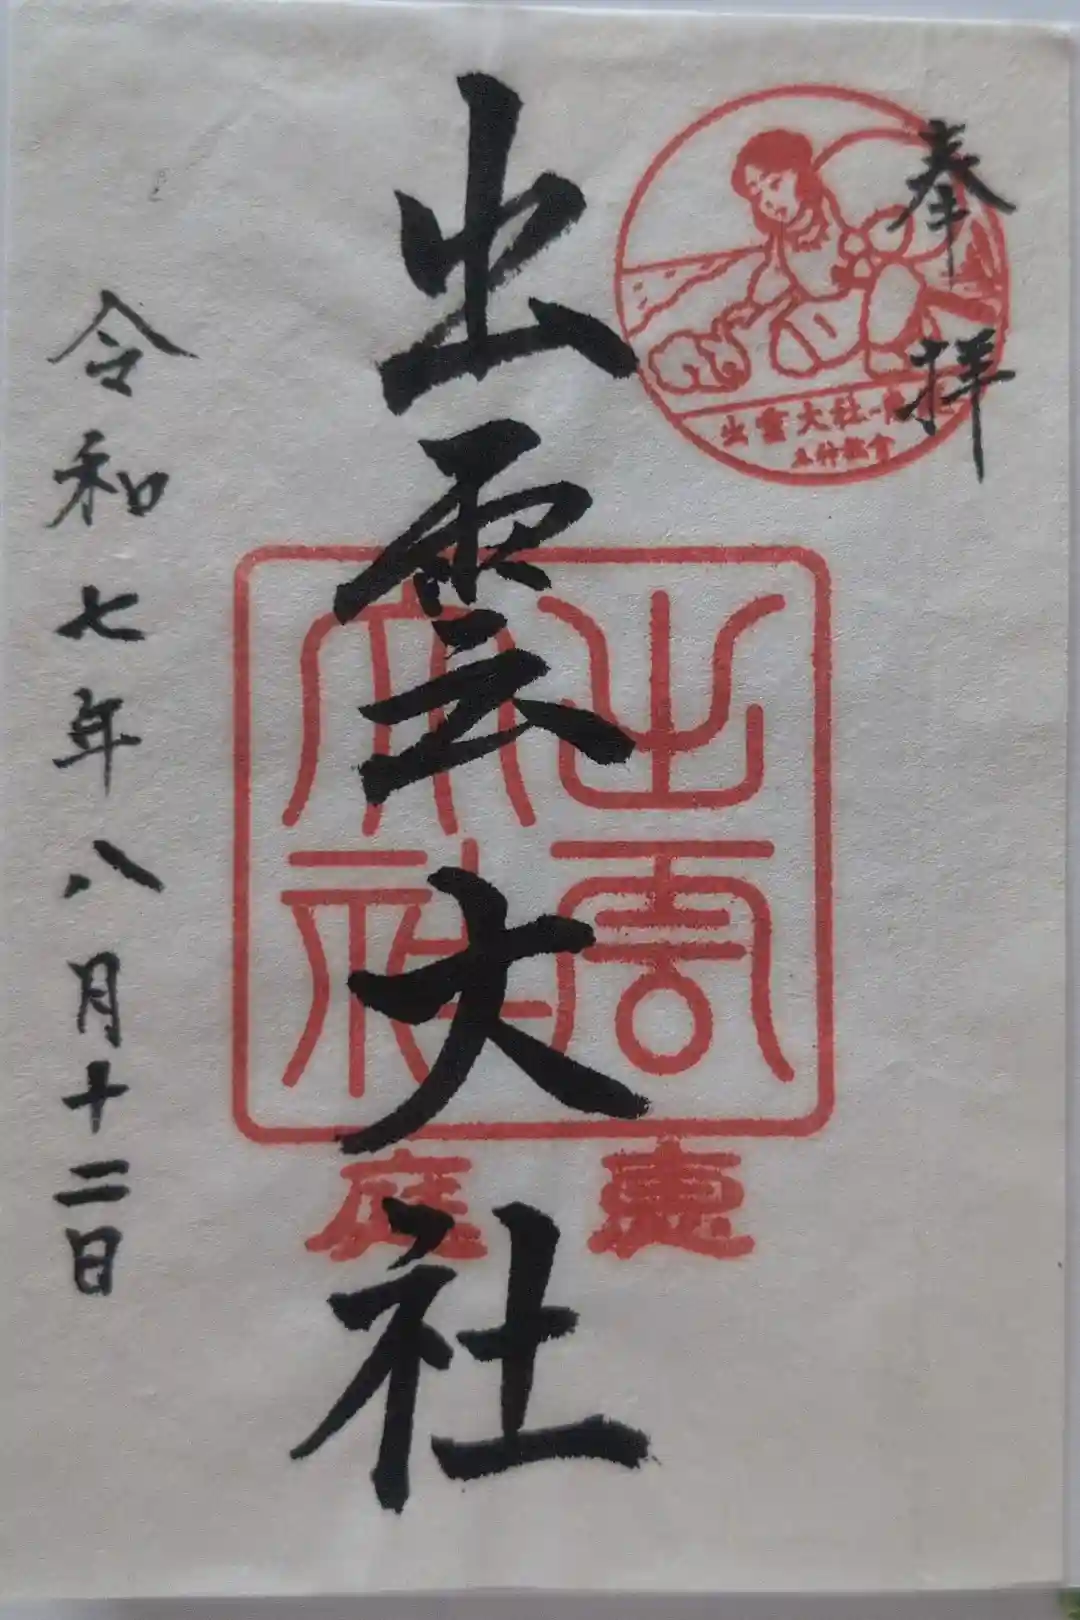 奉拝
出雲大社
出雲大社
出雲
大社
惠庭
令和七年八月十二日